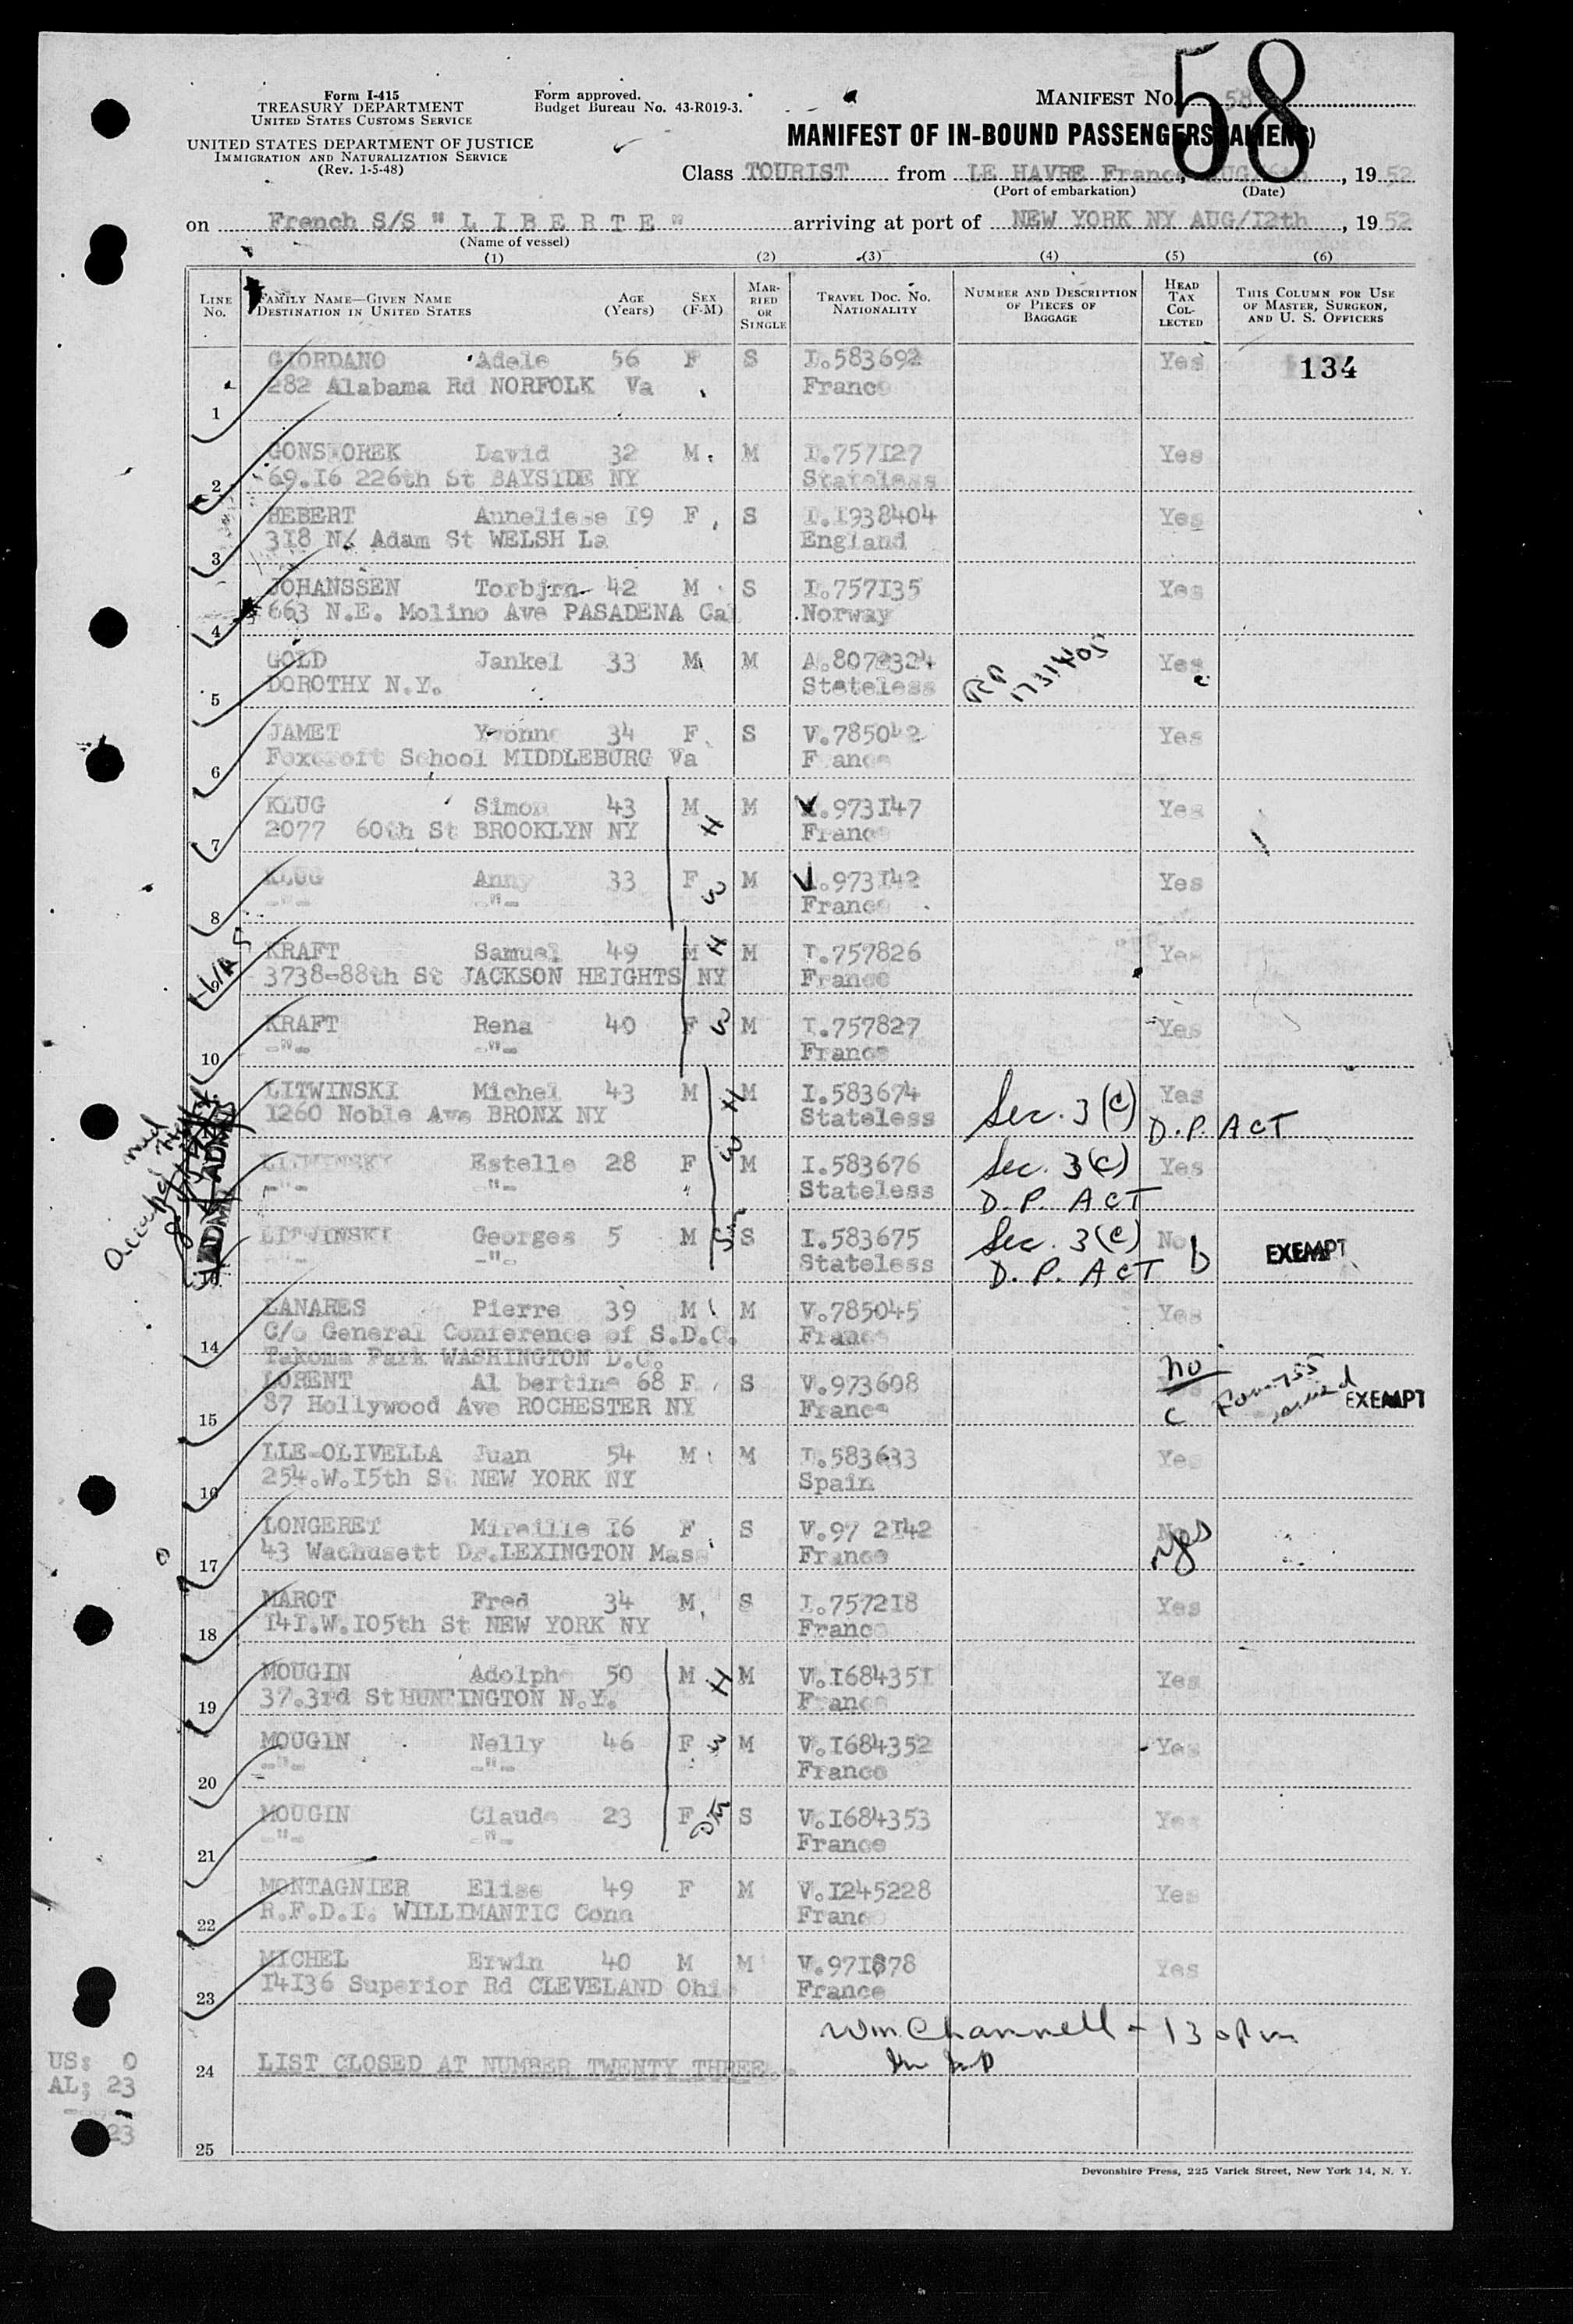 58
Form I-415
TREASURY DEPARTMENT
UNITED STATES CUSTOMS SERVICE
UNITED STATES DEPARTMENT OF JUSTICE
IMMIGRATION AND NATURALIZATION SERVICE
(Rev. 1-5-48)
Form approved.
Budget Bureau No. 43-R019-3.
MANIFEST No. 58
MANIFEST OF IN-BOUND PASSENGERS (ALIENS)
Class TOURIST from LE HAVRE France, 19 52
(Port of embarkation) (Date)
on French S/S " L I B E R T E " arriving at port of NEW YORK NY AUG/12th, 19 52
(Name of vessel)
(1) (2) (3) (4) (5) (6)
LINE No. FAMILY NAME—GIVEN NAME DESTINATION IN UNITED STATES AGE (Years) SEX (F-M) MARRIED OR SINGLE TRAVEL DOC. NO. NATIONALITY NUMBER AND DESCRIPTION OF PIECES OF BAGGAGE HEAD TAX COLLECTED THIS COLUMN FOR USE OF MASTER, SURGEON, AND U. S. OFFICERS
GIORDANO Adele 56 F S I.583692 Yes 134
282 Alabama Rd NORFOLK Va France
1
GONSTOREK David 32 M M I.757127 Yes
2 69.16 226th St BAYSIDE NY Stateless
HEBERT Anneliese 19 F S I.1938404 Yes
3 318 N. Adam St WELSH La England
JOHANSSEN Torbjrn 42 M S I.757135 Yes
4 663 N.E. Molino Ave PASADENA Cal Norway
GOLD Jankel 33 M M A.8072324 Yes
5 DOROTHY N.Y. Stateless RP 1731405 c
JAMET Yvonne 34 F S V.785042 Yes
6 Foxcroft School MIDDLEBURG Va France
KLUG Simon 43 M H M V.973147 Yes
7 2077 60th St BROOKLYN NY France
KLUG Anny 33 F W M V.973142 Yes
8 -"- -"- France
KRAFT Samuel 49 M H M I.757826 Yes
3738-88th St JACKSON HEIGHTS NY France
KRAFT Rena 40 F W M I.757827 Yes
10 -"- -"- France
LITWINSKI Michel 43 M H M I.583674 Sec. 3 (c) Yes
1260 Noble Ave BRONX NY Stateless D.P. ACT
LITWINSKI Estelle 28 F W M I.583676 Sec. 3 (c) Yes
-"- -"- Stateless D.P. ACT
LITWINSKI Georges 5 M Son S I.583675 Sec. 3 (c) No b EXEMPT
-"- -"- Stateless D.P. ACT
LANARES Pierre 39 M M V.785045 Yes
14 C/o General Conference of S.D.C. France
Takoma Park WASHINGTON D.C.
LORENT Al bertine 68 F S V.973608 no
15 87 Hollywood Ave ROCHESTER NY France c EXEMPT
LLE-OLIVELLA Juan 54 M M I.583633 Yes
16 254.W.15th St NEW YORK NY Spain
LONGERET Mireille 16 F S V.97 2142 yes
17 43 Wachusett Dr.LEXINGTON Mass France
MAROT Fred 34 M S I.757218 Yes
18 141.W.105th St NEW YORK NY France
MOUGIN Adolphe 50 M H M V.1684351 Yes
19 37.3rd St HUNTINGTON N.Y. France
MOUGIN Nelly 46 F W M V.1684352 Yes
20 -"- -"- France
MOUGIN Claude 23 F S V.1684353 Yes
21 -"- -"- France
MONTAGNIER Elise 49 F M V.1245228 Yes
22 R.F.D.I. WILLIMANTIC Conn France
MICHEL Erwin 40 M M V.971878 Yes
23 14136 Superior Rd CLEVELAND Ohio France
Wm Channell - 130 pm
24 LIST CLOSED AT NUMBER TWENTY THREE.-
US: 0
AL; 23
23
25
Devonshire Press, 225 Varick Street, New York 14, N. Y.